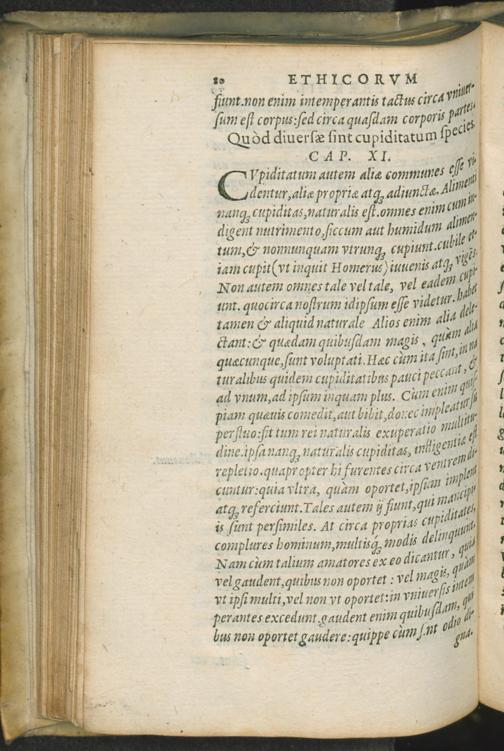 80 ETHICORVM
fiunt.non enim intemperantis tactus circa vniuer-
sum est corpus:sed circa quasdam corporis partes.
Quòd diuersæ sint cupiditatum species.
CAP. XI.
CVpiditatum autem aliæ communes esse vi-
dentur,aliæ propriæ atq; adiunctæ. Alimenti
nanq; cupiditas,naturalis est.omnes enim cum in-
digent nutrimento,siccum aut humidum alimen-
tum,& nonnunquam vtrunq; cupiunt.cubile et-
iam cupit(vt inquit Homerus) iuuenis atq; vigēs.
Non autem omnes tale vel tale, vel eadem cupi-
unt. quocirca nostrum idipsum esse videtur. habet
tamen & aliquid naturale Alios enim alia dele-
ctant:& quædam quibusdam magis, quàm alia
quæcunque,sunt voluptati. Hæc cùm ita sint,in na
turalibus quidem cupiditatibus pauci peccant, &
ad vnum,ad ipsum inquam plus. Cùm enim quis
piam quæuis comedit,aut bibit,donec impleatur su
perfluo:fit tum rei naturalis exuperatio multitu-
dine.ipsa nanq; naturalis cupiditas, indigentiæ est
repletio.quapropter hi furentes circa ventrem di-
cuntur:quia vltra, quàm oportet,ipsum implent
atq; referciunt.Tales autem ij fiunt,qui mancipijs
is sunt persimiles. At circa proprias cupiditates,
complures hominum,multisq́; modis delinquunt.
Nam cùm talium amatores ex eo dicantur, quia
vel gaudent,quibus non oportet: vel magis, quàm
vt ipsi multi,vel non vt oportet:in vniuersis intem
perantes excedunt.gaudent enim quibusdam, qui
bus non oportet gaudere:quippe cùm sint odio di-
gna.